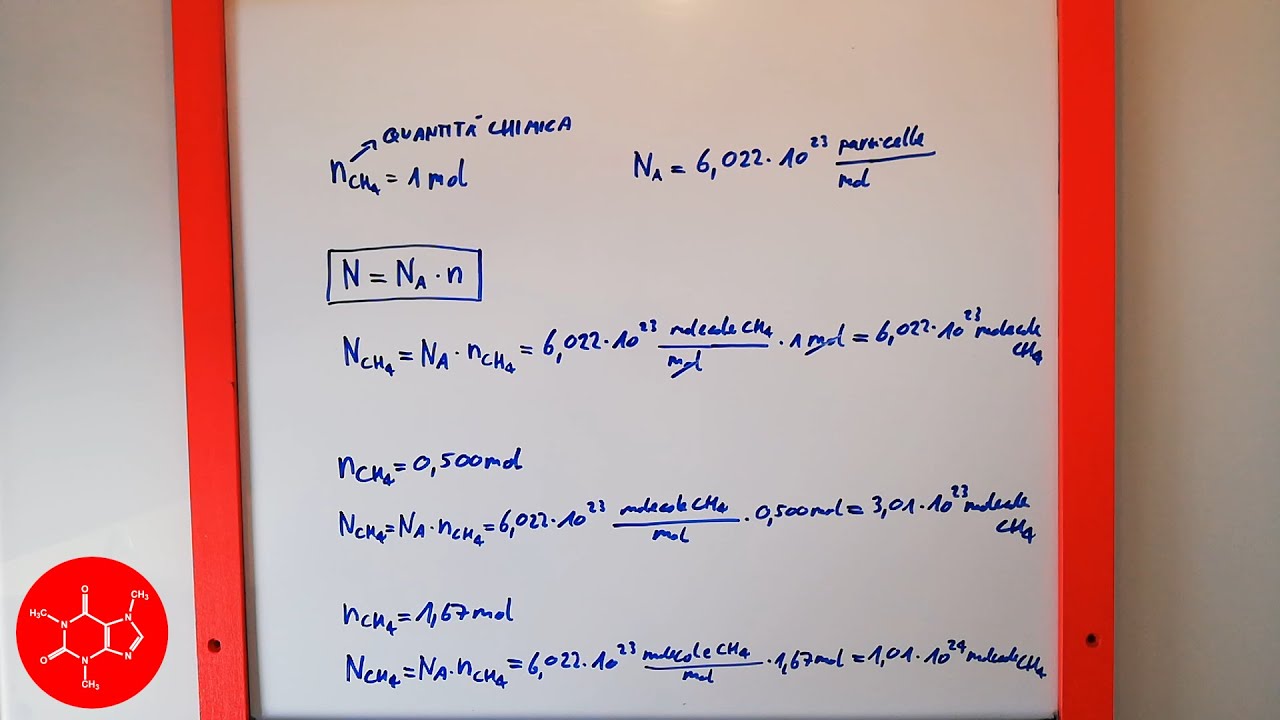 QUANTITÀ CHIMICA
nCH₄ = 1 mol
N_A = 6,022·10²³ particelle/mol
N = N_A · n
N_CH₄ = N_A · n_CH₄ = 6,022·10²³ molecole CH₄/mol · 1 mol = 6,022·10²³ molecole CH₄
n_CH₄ = 0,500 mol
N_CH₄ = N_A · n_CH₄ = 6,022·10²³ molecole CH₄/mol · 0,500 mol = 3,01·10²³ molecole CH₄
n_CH₄ = 1,67 mol
N_CH₄ = N_A · n_CH₄ = 6,022·10²³ molecole CH₄/mol · 1,67 mol = 1,01·10²⁴ molecole CH₄
O
CH₃
H₃C
N
N
O
N
N
CH₃